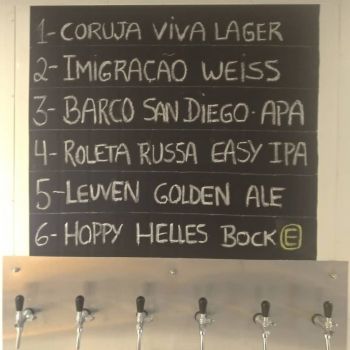 1-CORUJA VIVA LAGER
2-IMIGRAÇÃO WEISS
3-BARCO SAN DIEGO·APA
4-ROLETA RUSSA EASY IPA
5-LEUVEN GOLDEN ALE
6-HOPPY HELLES BOCK E